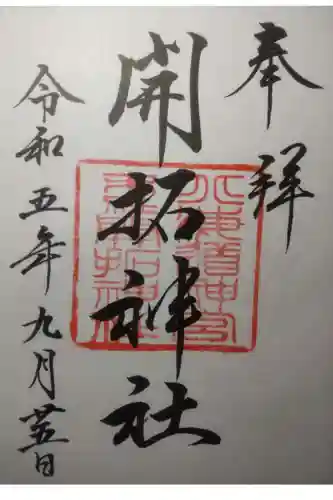 奉拝
開拓神社
令和五年九月廿五日
北海道神宮
末社開拓神社